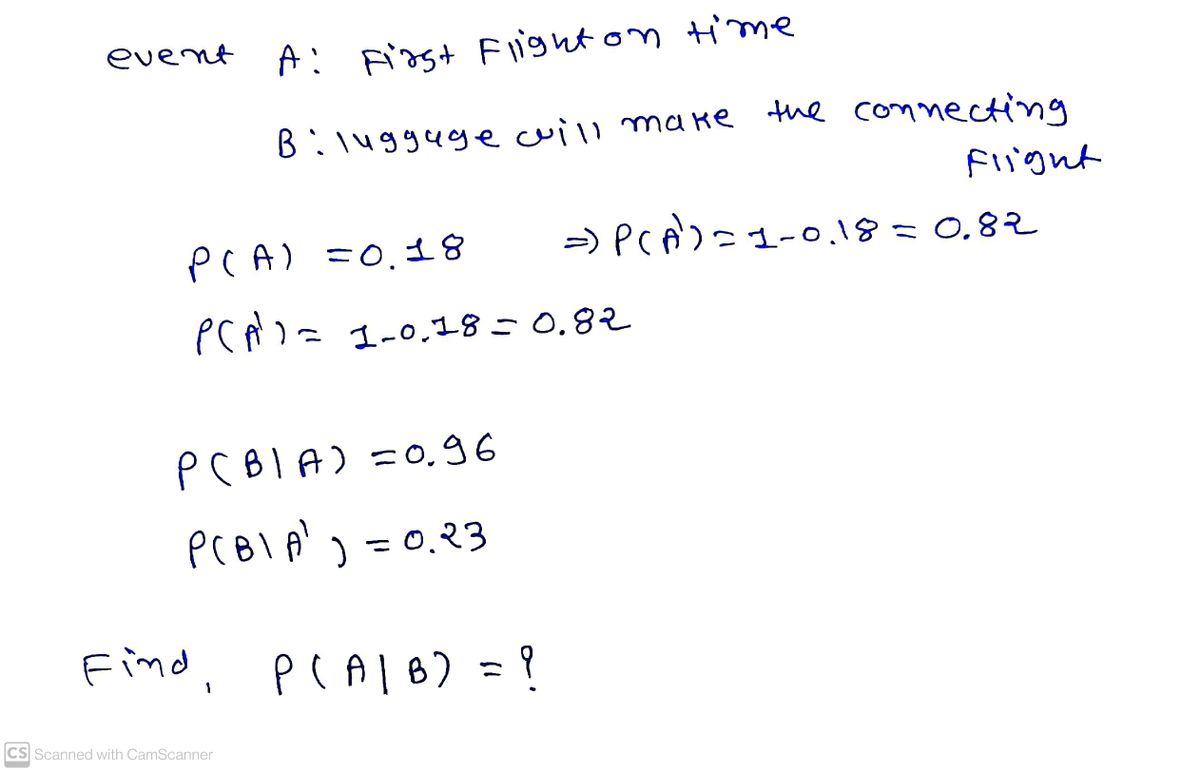 event A: First Flight on time
B: luggage will make the connecting
Flight
P(A) = 0.18 ⇒ P(A') = 1-0.18 = 0.82
P(A') = 1-0.18 = 0.82
P(B|A) = 0.96
P(B|A') = 0.23
Find, P(A|B) = ?
CS Scanned with CamScanner